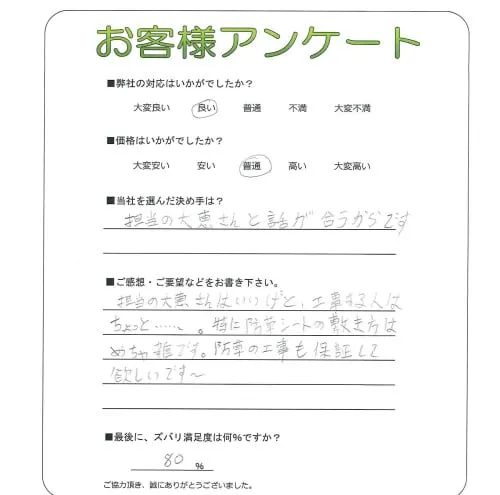 お客様アンケート
■弊社の対応はいかがでしたか？
大変良い 良い 普通 不満 大変不満
■価格はいかがでしたか？
大変安い 安い 普通 高い 大変高い
■当社を選んだ決め手は？
担当の大恵さんと話が合うからです
■ご感想・ご要望などをお書き下さい。
担当の大恵さんはいいけど、工事する人は
ちょっと……。特に防草シートの敷き方は
めちゃ雑です。防草の工事も保証して
欲しいです〜
■最後に、ズバリ満足度は何%ですか？
80 %
ご協力頂き、誠にありがとうございました。